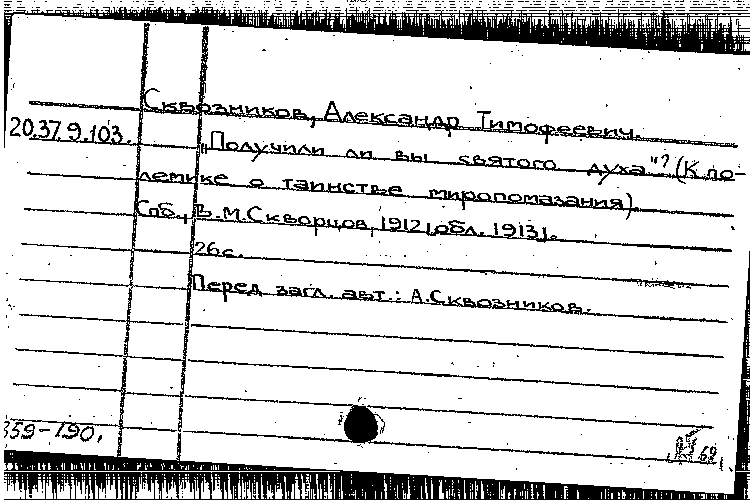 Сквозников, Александр Тимофеевич.
20.37.9.103.
„Получили ли вы святого духа"? (К по-
лемике о таинстве миропомазания).
Спб., В.М.Скворцов, 1912 [обл. 1913].
26с.
Перед загл. авт.: А.Сквозников.
359-190.